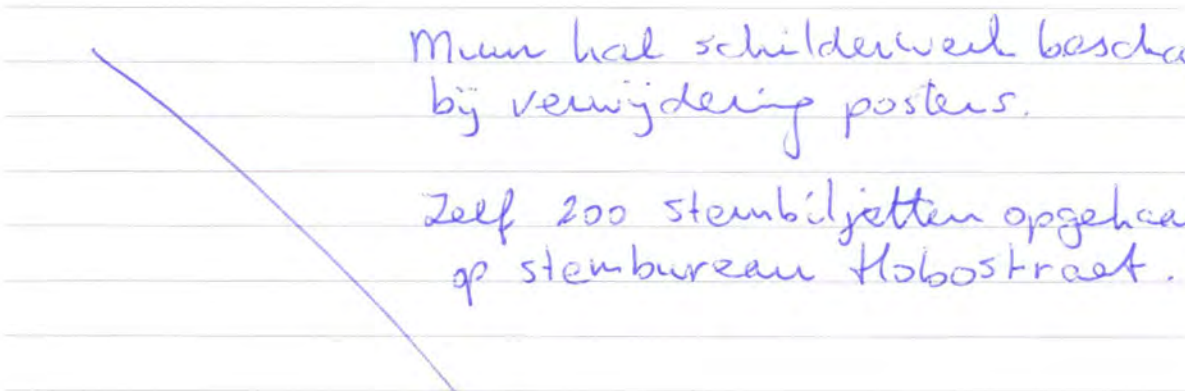 Muur hal schilderwerk bescha
bij verwijdering posters.
Zelf 200 stembiljetten opgehaa
op stembureau Hobostraat.